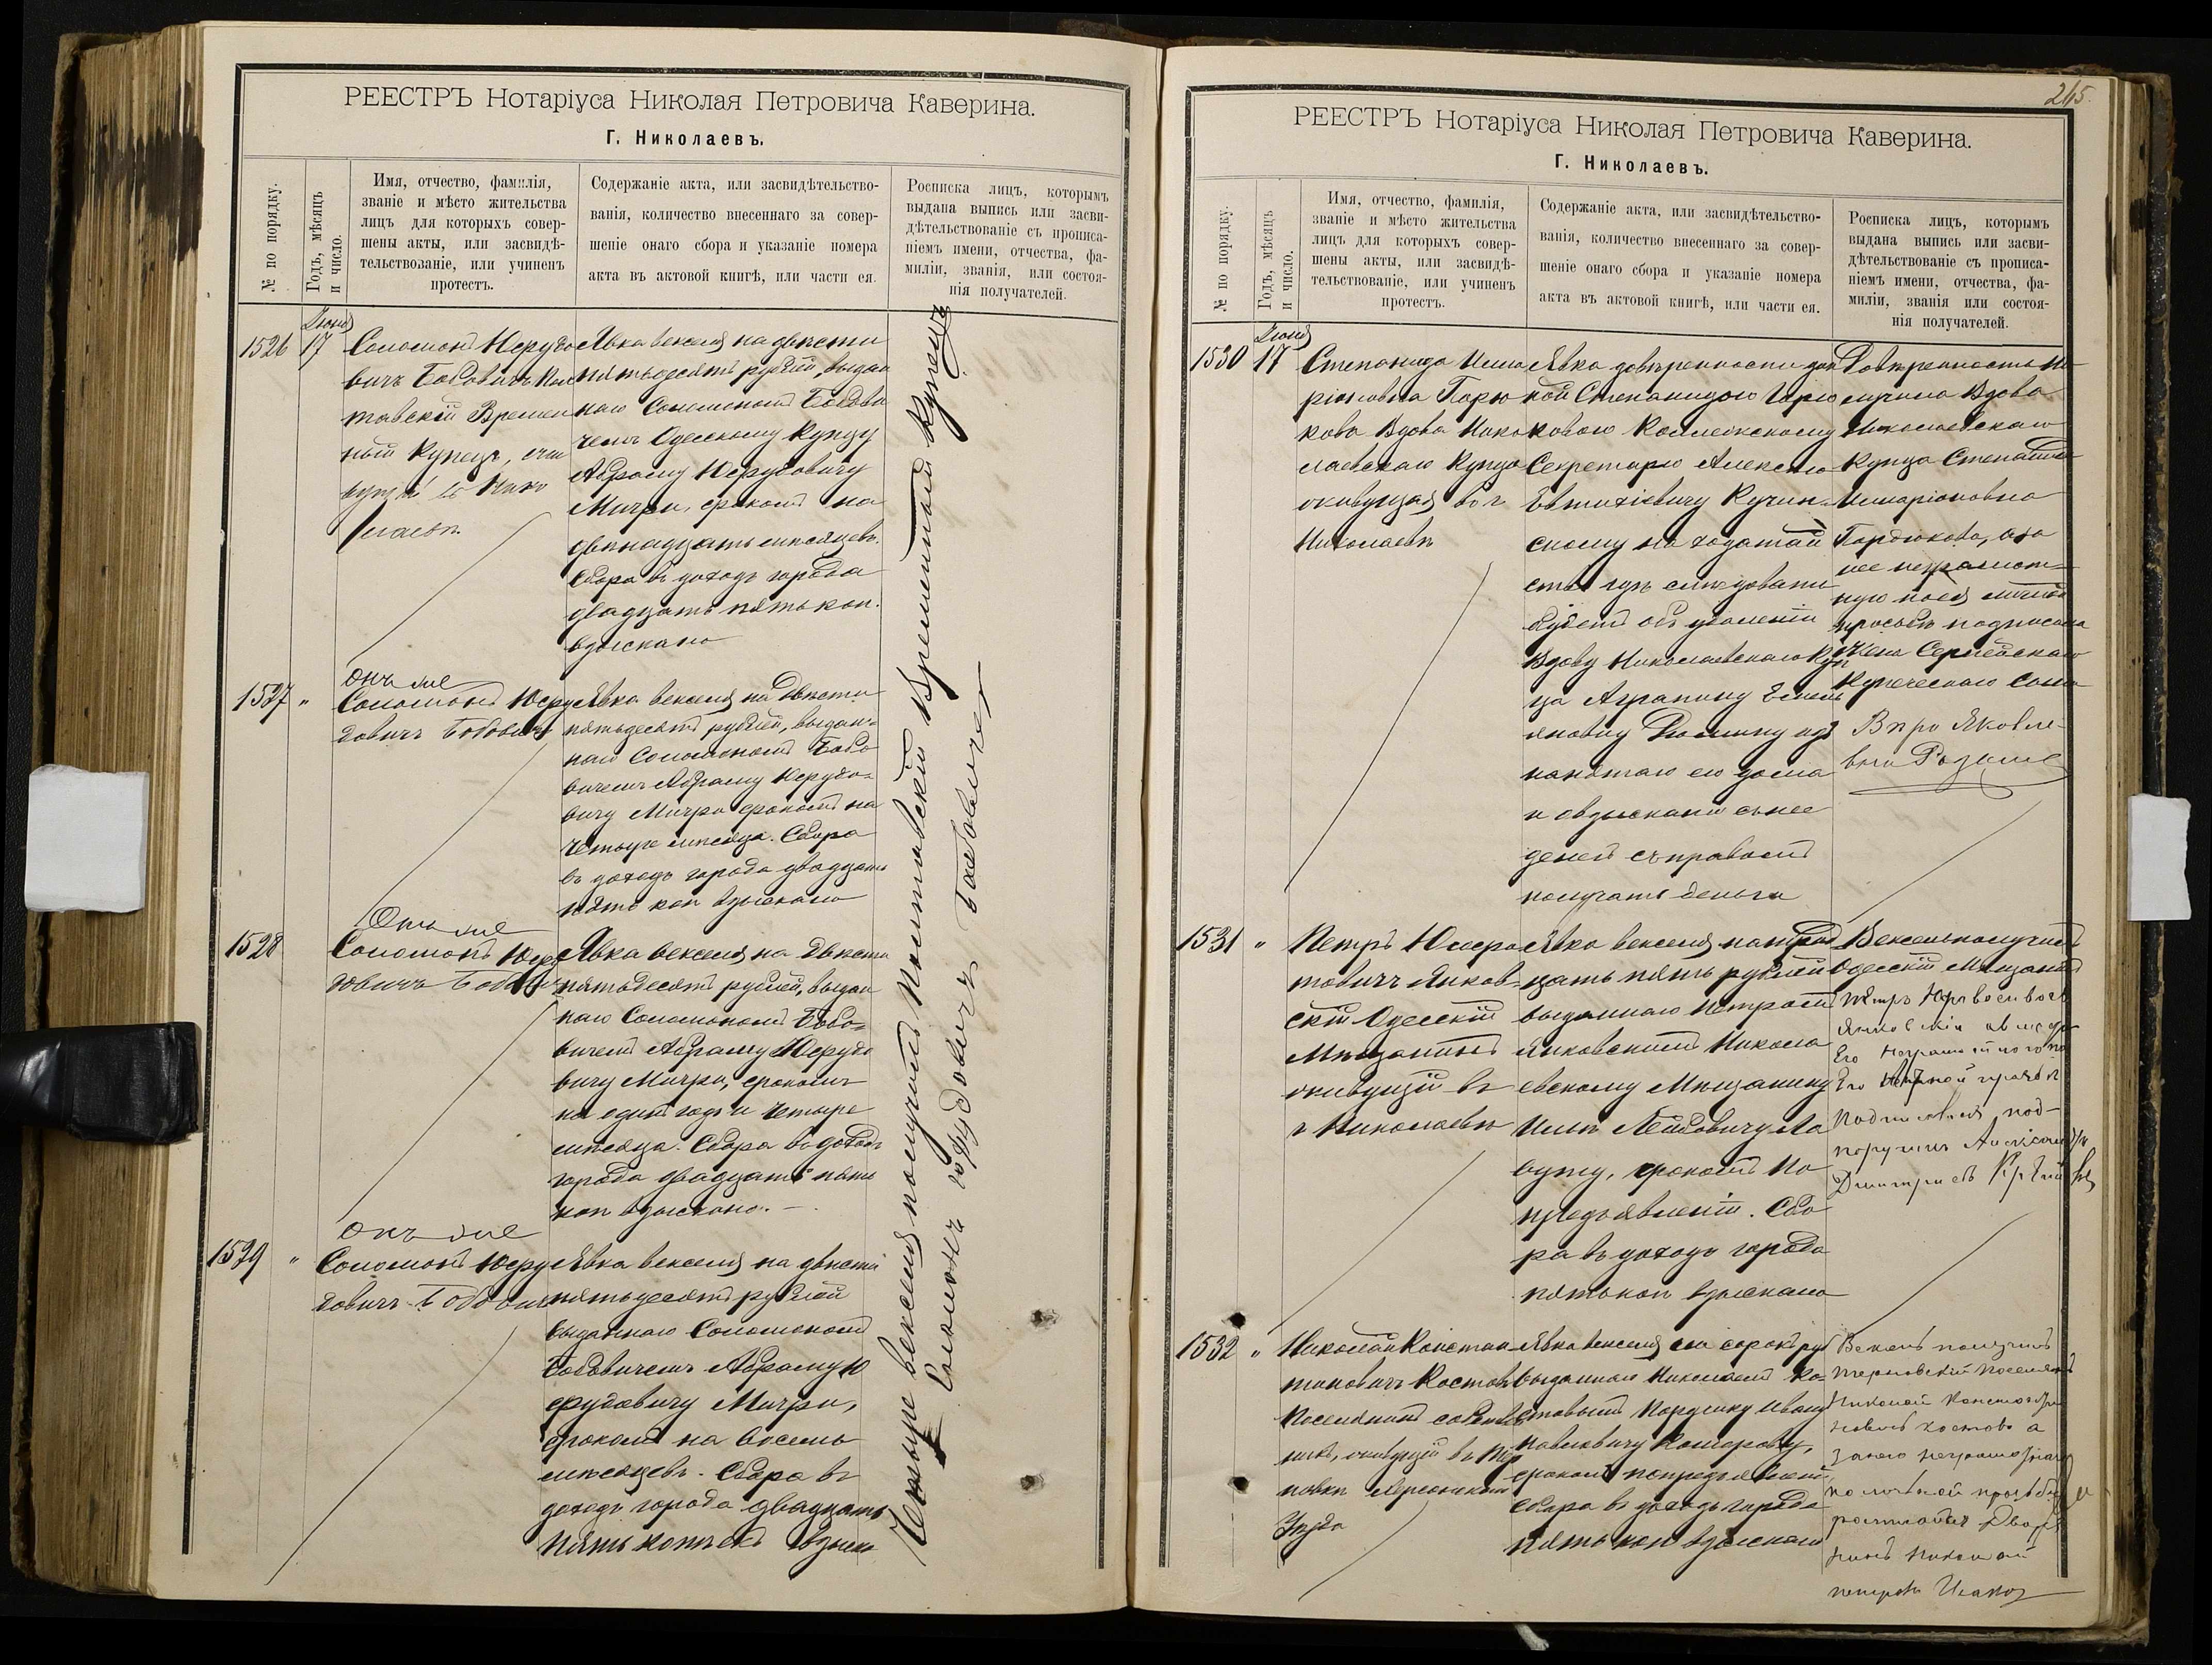 РЕЕСТРЪ Нотаріуса Николая Петровича Каверина.
Г. Николаевъ.
№ по порядку.
Годъ, мѣсяцъ
и число.
Имя, отчество, фамилія,
званіе и мѣсто жительства
лицъ для которыхъ совер-
шены акты, или засвидѣ-
тельствованіе, или учиненъ
протестъ.
Содержаніе акта, или засвидѣтельство-
ванія, количество внесеннаго за совер-
шеніе онаго сбора и указаніе номера
акта въ актовой книгѣ, или части ея.
Росписка лицъ, которымъ
выдана выпись или засви-
дѣтельствованіе съ прописа-
ніемъ имени, отчества, фа-
миліи, званія, или состоя-
нія получателей.
1526
Іюня
17
Соломонъ Юерудо
вичъ Бобовичъ Пол
тавскій Времен
ный Купецъ,
Явка векселя на двѣсти
пятьдесятъ рублей, выдан
наго Соломономъ Бобови
чемъ Одесскому Купцу
Абраму Юерудовичу
Мичри, срокомъ на
двѣнадцать мѣсяцевъ.
Сбора въ доходъ города
двадцать пять коп.
взыскано
1527 "
онъ же
Соломонъ Юеру
довичъ Бобовичъ
Явка векселя на двѣсти
пятьдесятъ рублей, выдан-
наго Соломономъ Бобо
вичемъ Абраму Юерудо-
вичу Мичри срокомъ на
четыре мѣсяца. Сбора
въ доходъ города двадцать
пять коп взыскано
1528
Онъ же
Соломонъ Юеру
довичъ Бобович
Явка векселя на двѣсти
пятьдесятъ рублей, выдан
наго Соломономъ Бобо-
вичемъ Абраму Юерудо
вичу Мичри, срокомъ
на одинъ годъ и четыре
мѣсяца. Сбора въ доходъ
города двадцать пять
коп взыскано. —
1529 "
онъ же
Соломонъ Юеру
довичъ Бобович
Явка векселя на двѣсти
пятьдесятъ рублей
выданнаго Соломономъ
Бобовичемъ Абраму Ю
ерудовичу Мичри,
срокомъ на восемь
мѣсяцевъ. Сбора въ
доходъ города двадцать
пять копѣекъ взыска
Четыре векселя получилъ Полтавскій Временный Купецъ
Соломонъ Юфудовичъ Бобовичъ
245.
РЕЕСТРЪ Нотаріуса Николая Петровича Каверина.
Г. Николаевъ.
№ по порядку.
Годъ, мѣсяцъ
и число.
Имя, отчество, фамилія,
званіе и мѣсто жительства
лицъ для которыхъ совер-
шены акты, или засвидѣ-
тельствованіе, или учиненъ
протестъ.
Содержаніе акта, или засвидѣтельство-
ванія, количество внесеннаго за совер-
шеніе онаго сбора и указаніе номера
акта въ актовой книгѣ, или части ея.
Росписка лицъ, которымъ
выдана выпись или засви-
дѣтельствованіе съ прописа-
ніемъ имени, отчества, фа-
миліи, званія или состоя-
нія получателей.
1530
Іюня
17
Степанида Илла
ріоновна Гордю
кова Вдова Нико
лаевскаго Купца
живущая въ г.
Николаевѣ
Явка довѣренности дан
ной Степанидою Гордю
ковою Коллежскому
Секретарю Алексѣю
Евтихіевичу Кучин-
скому на ходатай
ство гдѣ слѣдовать
будетъ объ удаленіи
Вдову Николаевскаго Куп
ца Аграпину Емель
янову Дюмину изъ
нанятаго ею дома
и о взысканіи съ нее
денегъ съ правомъ
получать деньги
Довѣренность по
лучила Вдова
Николаевскаго
Купца Степанида
Илларіоновна
Гордюкова, а за
нее неграмот-
ную по ея личной
просьбѣ подписала
жена Сергѣевскаго
Купеческаго сына
Вѣра Яковле-
вна
1531 "
Петръ
товичъ Янков-
скій Одесскій
Мѣщанинъ
живущій въ
г Николаевѣ
Явка векселя на трид
цать пять рублей
выданнаго Петромъ
Янковскимъ Никола
евскому Мѣщанину
Ильѣ Лейбовичу
срокомъ по
предъявленіи. Сбо
ра въ доходъ города
пять коп взыскано
Вексель получилъ
Одесскій Мѣщанинъ
Петръ
Янковскій а вмѣсто
Его неграмотнаго по
Его личной прозбѣ
Подписался под-
поручикъ
Дмитріевъ
1532 "
Николай Констан
тиновичъ Костовъ
Поселянинъ собствен
никъ, живущій въ Тер
новкѣ Херсонскаго
Уѣзда
Явка векселя на сорокъ руб
выданнаго Николаемъ Ко-
стовымъ Поручику Ивану
Павловичу Комарову,
срокомъ по предъявленіи,
Сбора въ доходъ города
пять коп взыскано
Вексель получилъ
Терновскій Поселянинъ
Николай Константи
новичъ Костовъ а
за него неграмотнаго
по личной просьбѣ
росписался Дворя
нинъ Николай